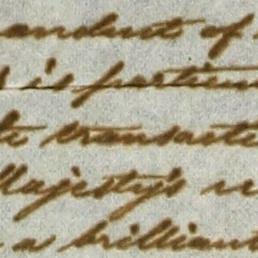 conduct of
is particu
transacte
Majesty's
a brilliant